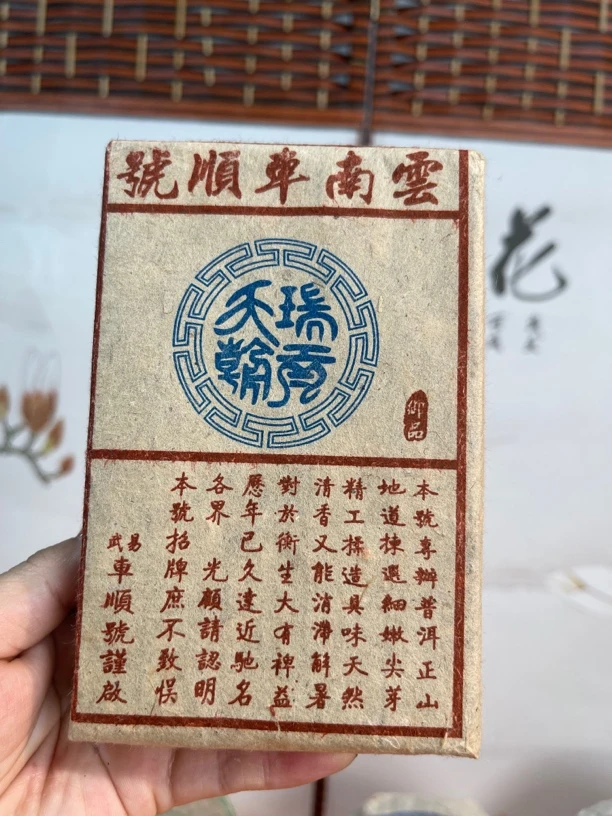 雲南車順號
瑞貢
天朝
御品
本號專辦普洱正山
地道揀選細嫩尖芽
精工揉造具味天然
清香又能消滯解暑
對於衛生大有裨益
歷年已久遠近馳名
各界 光顧請認明
本號招牌庶不致悞
易武車順號謹啟
花